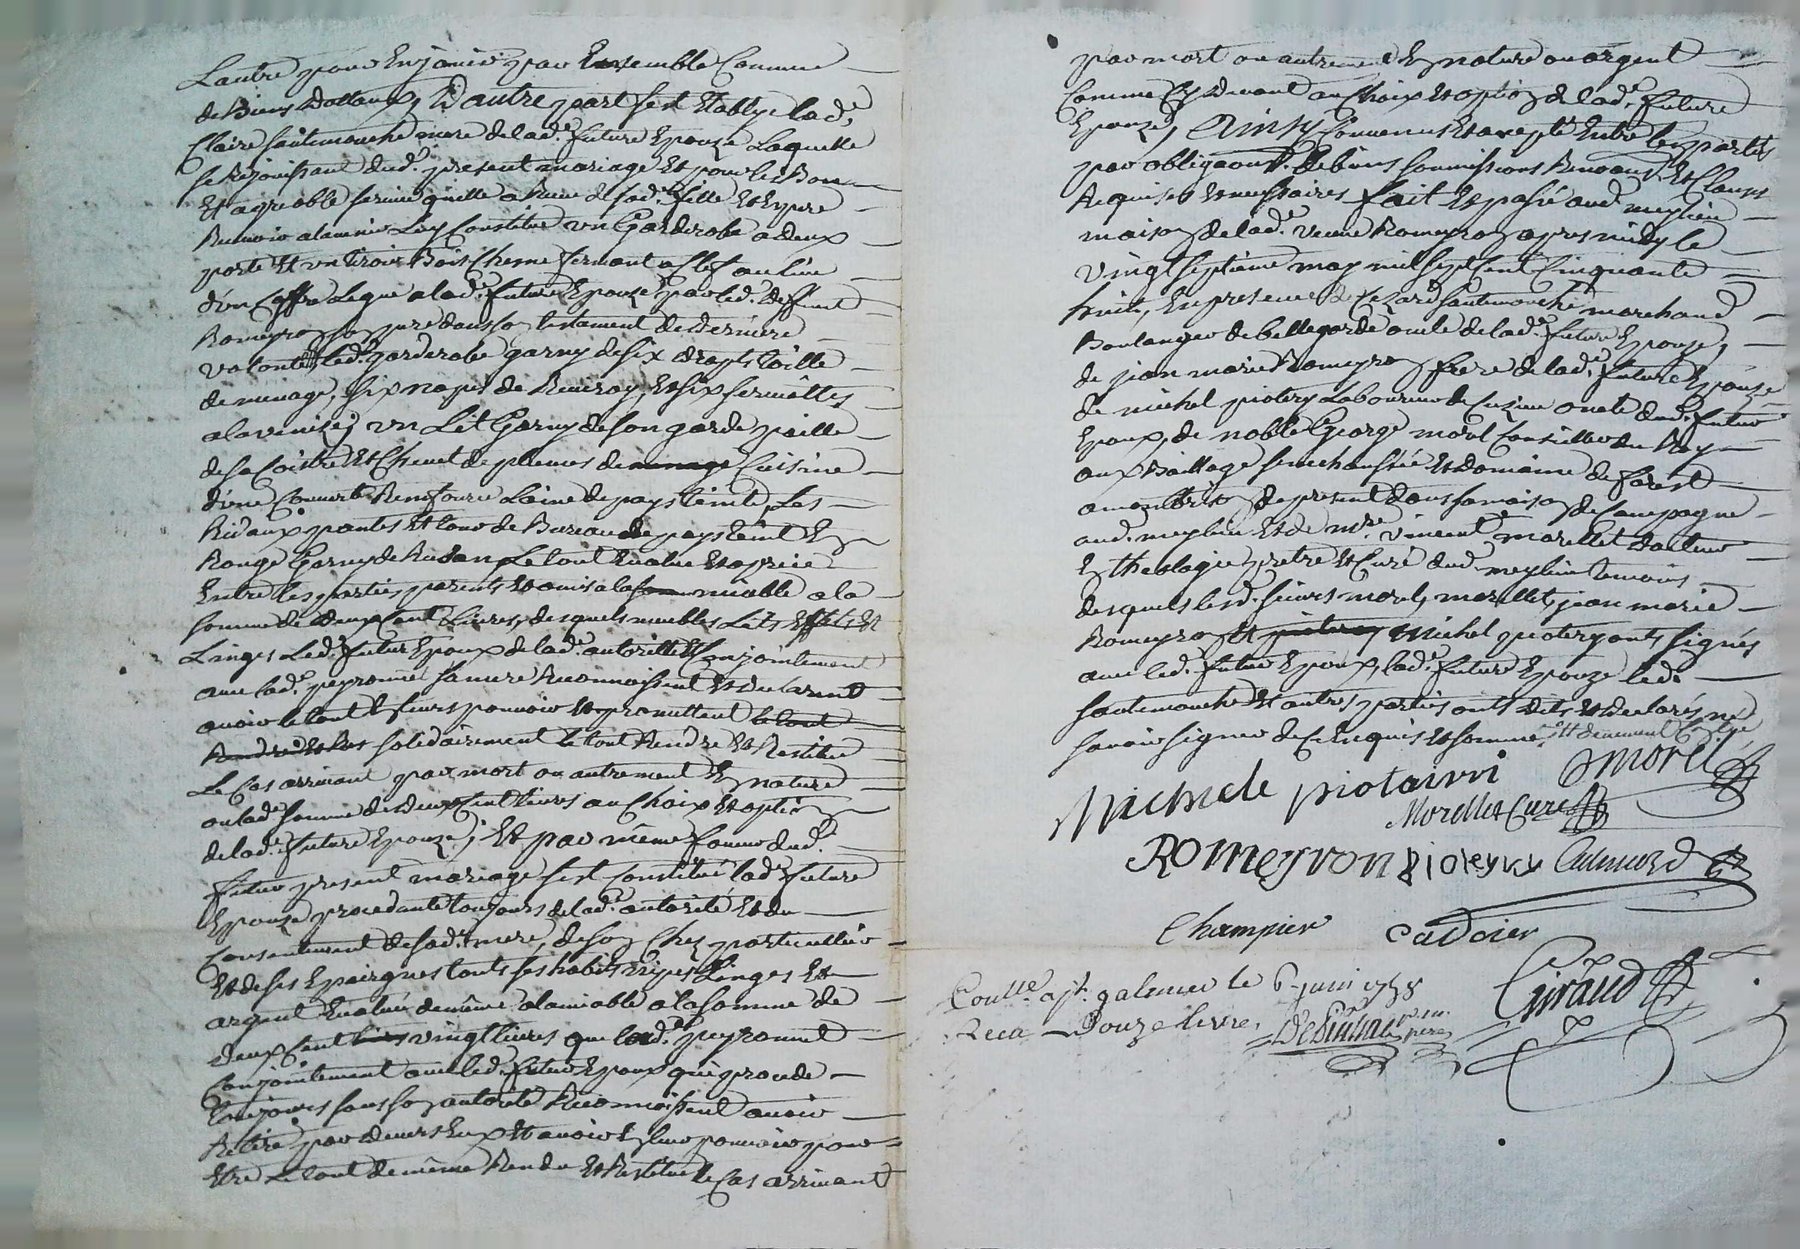 Lautre pour En jouir par Ensemble Comme
de Biens Dottaux, Et D'autre part sest Etablye lad.e
Claire Sautemouche mere de lad.e future Epouze Laquelle
se Rejouissant dud. present mariage Et pour les Bons
Et agreable service quelle a Reçue de sad.e fille Et Espere
Recevoir a lavenir Luy Constitue un Garderobe a deux
porte Et un tiroir Bois Chesne fermant a Clef au lieu
d'un Coffre legué a lad.e future Epouze par led. deffunt
Romeyron son pere dans son testament de derniere
volonté, led. garderobe garny de six draps toille
de menage, six napes de et six serviettes
a la venize, un Lit Garny de son garde paille
de sa Coistre Et Chevet de plumes de menage Cuisine
d'une Couverte Laine de pays teinte, Les
Rideaux pantes Et tour de Bureau de pays teint En
Rouge Garny de Ruban Le tout Evalué Et aprecié
Entre les parties parents Et amis a la som miable a la
somme de deux Cent Livres, desquels meubles Lits Effets Et
Linges Led. futur Epoux de lad.e autorité Et Conjointement
avec lad.e peyronne sa mere Reconnoissent Et declarent
avoir le tout En leurs pouvoir Et promettent le tout
Rendre Et Res solidairement le tout Rendre Et Restituer
Le Cas arrivant par mort ou autrement En nature
ou lad.e somme de deux Cent livres au Choix Et option
de lad.e future Epouze; Et par même faveur dud.
futur present mariage sest Constitué lad.e future
Epouze procedante toujours de lad.e autorité Et du
Consentement de sad.e mere, de son Chef particullier
Et de ses Epairgnes touts ses habits nipes Linges Et
argent Evalué de même a lamiable a la somme de
deux Cent livres vingt livres que lad.e peyronne
Conjointement avec led. futur Epoux qui procede
toujours sous son autorité Reconnoissent avoir
Retiré par devers Eux Et avoir En leur pouvoir pour
Etre Le tout de même Rendu Et Restitué le Cas arrivant
par mort ou autrement En nature ou argent
Comme Cy devant au Choix Et option de lad.e future
Epouze, Ainsy Convenus Et accepté Entre les parties
par obligaons. de biens soummissions Renoaons. Et Clauses
Requises Et necessaires fait Et passé aud. meylieu
maison de lad.e veuve Romeyron apres midy le
vingt septième may mil sept Cent Cinquante
huit, En presence de Cezard Sautemouche marchand
Boulanger de bellegarde oncle de lad.e future Epouze,
de jean marie Romeyron frere de lad.e future Epouze
de michel piotery Laboureur de Cuzieu oncle dud. futur
Epoux, de noble George morel Conseiller du Roy
aux Baillage senechaussée Et domaine de forest
a montbrison de present dans sa maison de Campagne
aud. meylieu Et de mre. vincent morellet docteur
En theologie pretre Et Curé dud. meylieu temoins
desquels lesd. sieurs morel, morellet, jean marie
Romeyron Et piotery michel piotery onts signés
avec led. futur Epoux, lad.e future Epouze led.
Sautemouche Et autres parties onts dits Et declarés ne
savoir signer de Ce Enquis Et sommé.
Michele piotairri
Morel
Morellet Curé
ROMEYRON
pioteyry
Champier
Cadoier
Giraud
Conlle. a St. galmier le 6. juin 1758
Reçu Douze livre.